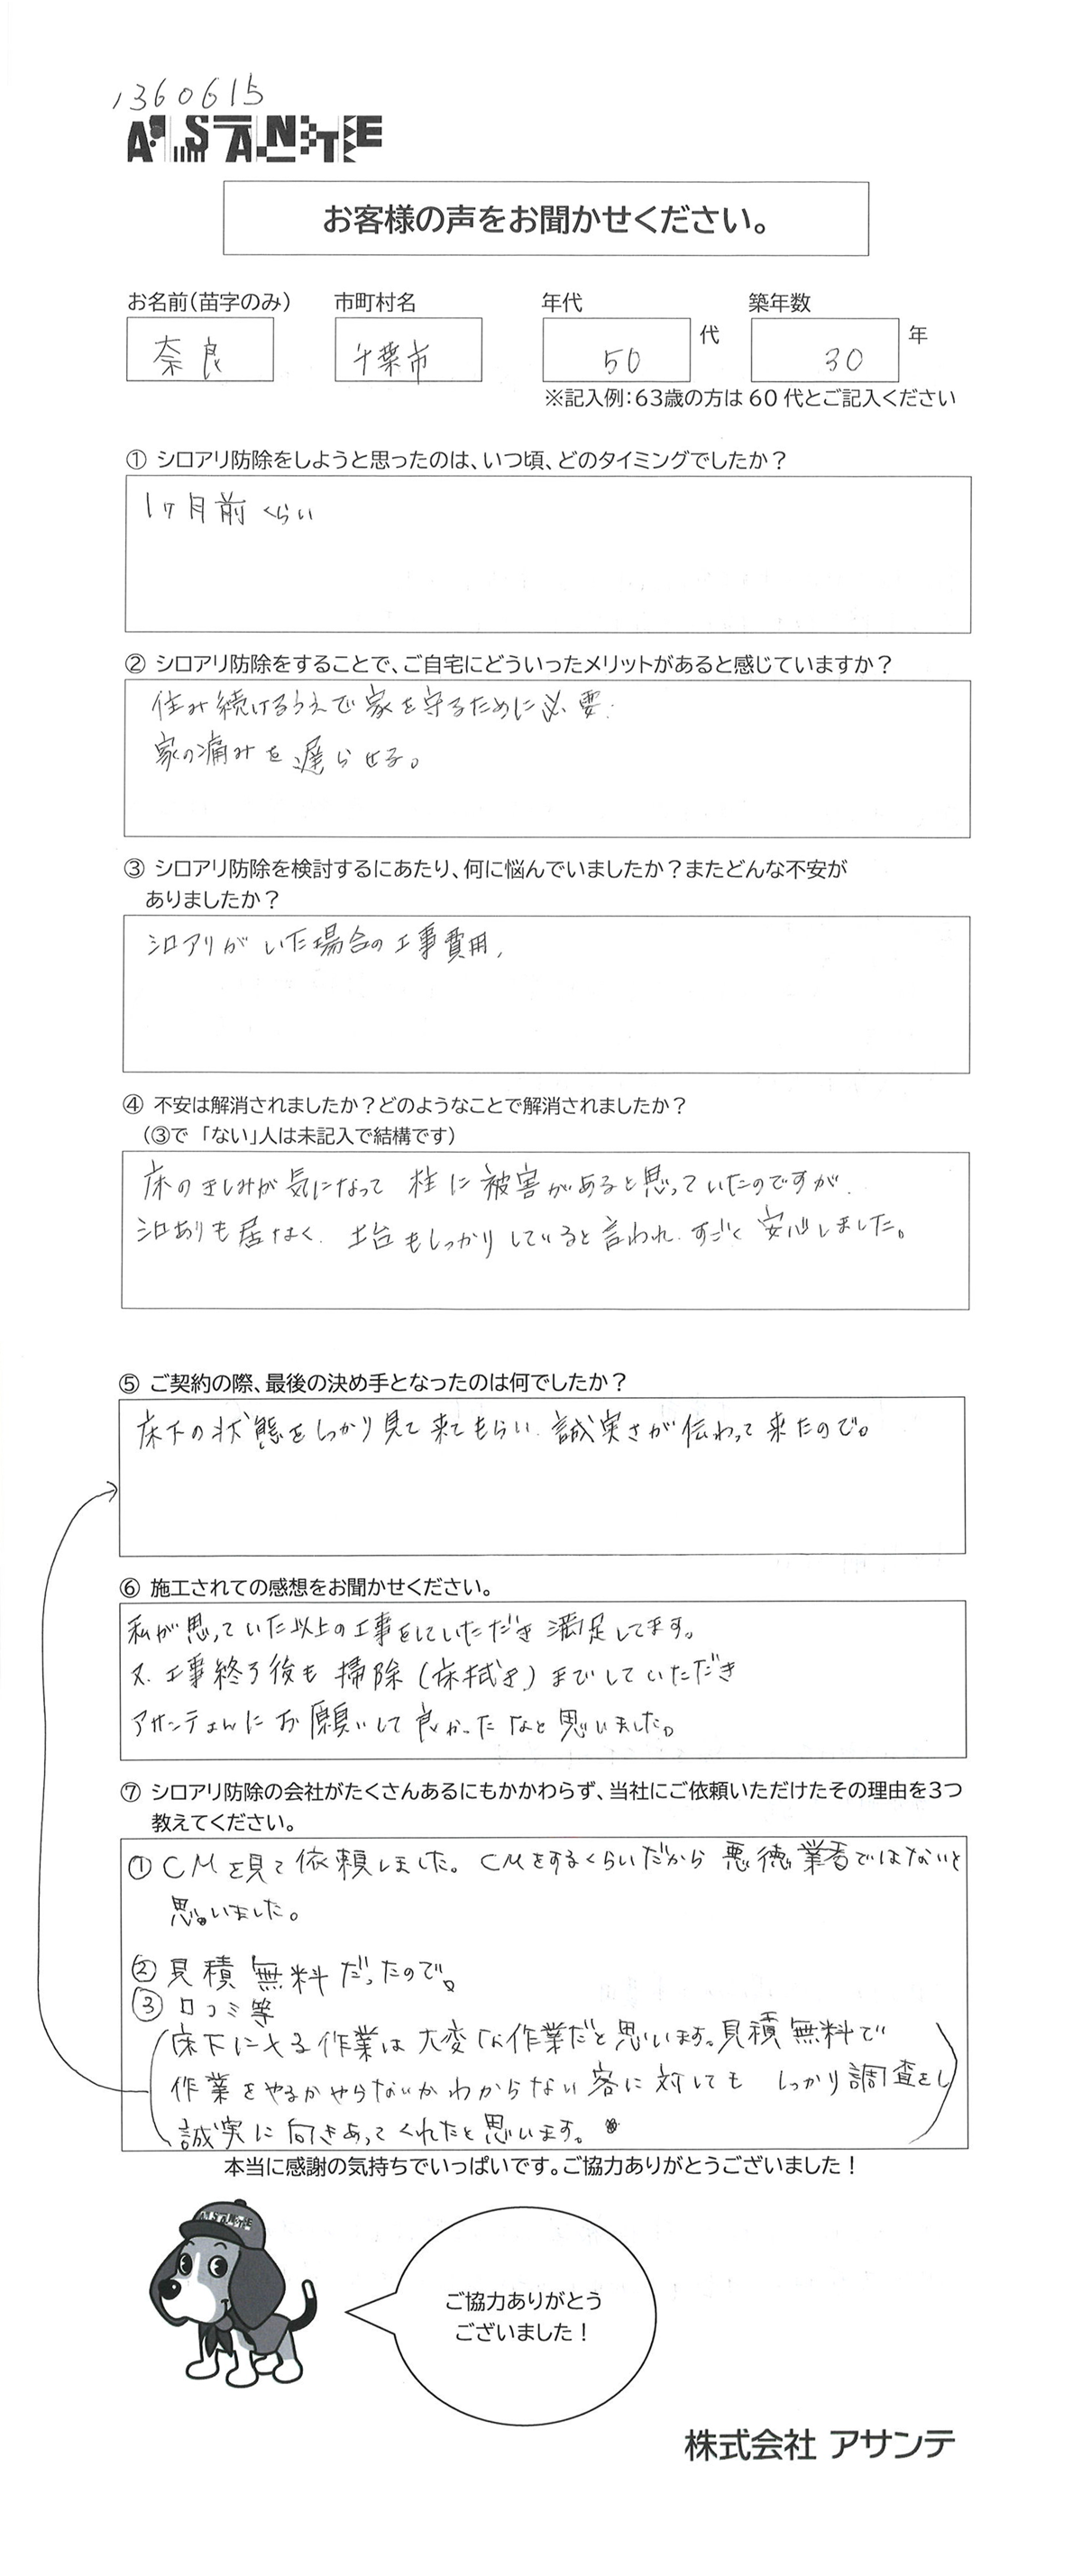 1360615
ASANTE
お客様の声をお聞かせください。
お名前(苗字のみ) 市町村名 年代 築年数
奈良 千葉市 50 代 30 年
※記入例:63歳の方は60代とご記入ください
① シロアリ防除をしようと思ったのは、いつ頃、どのタイミングでしたか?
1ヶ月前くらい
② シロアリ防除をすることで、ご自宅にどういったメリットがあると感じていますか?
住み続けるうえで家を守るために必要.
家の痛みを遅らせる。
③ シロアリ防除を検討するにあたり、何に悩んでいましたか?またどんな不安が
ありましたか?
シロアリがいた場合の工事費用,
④ 不安は解消されましたか?どのようなことで解消されましたか?
(③で「ない」人は未記入で結構です)
床のきしみが気になって 柱に被害があると思っていたのですが.
シロありも居なく. 土台もしっかりしていると言われ.すごく安心しました。
⑤ ご契約の際、最後の決め手となったのは何でしたか?
床下の状態をしっかり見て来てもらい.誠実さが伝わって来たので。
⑥ 施工されての感想をお聞かせください。
私が思っていた以上の工事をしていただき満足してます。
又.工事終了後も掃除(床拭き)までしていただき
アサンテさんにお願いして良かったなと思いました。
⑦ シロアリ防除の会社がたくさんあるにもかかわらず、当社にご依頼いただけたその理由を3つ
教えてください。
①CMを見て依頼しました。CMをするくらいだから悪徳業者ではないと
思いました。
②見積無料だったので。
③口コミ等
(床下に入る作業は大変な作業だと思います。見積無料で
作業をやるかやらないかわからない客に対しても しっかり調査をし
誠実に向きあってくれたと思います。)
本当に感謝の気持ちでいっぱいです。ご協力ありがとうございました!
ASANTE
ご協力ありがとう
ございました!
株式会社 アサンテ